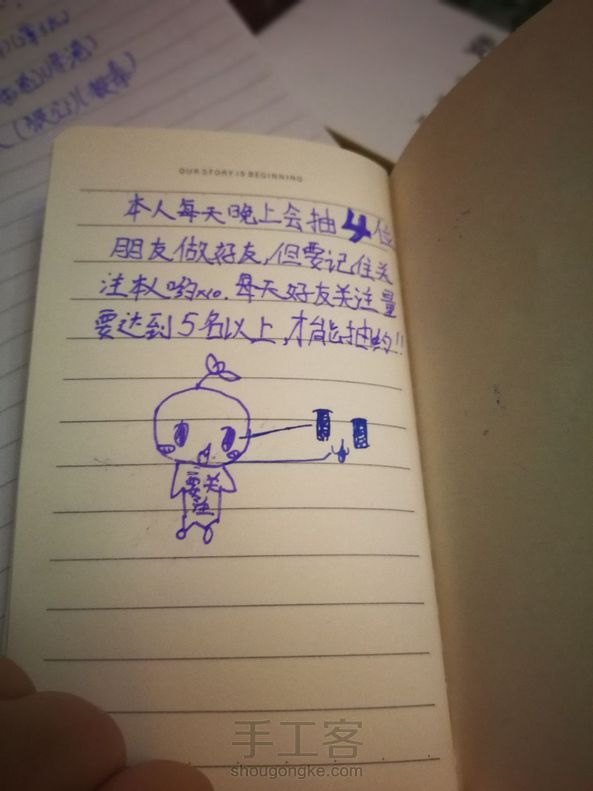 OUR STORY IS BEGINNING
本人每天晚上会抽4位
朋友做好友,但要记住关
注本人哟×10.每天好友关注量
要达到5名以上,才能抽哟!!
要关
注
手工客
shougongke.com